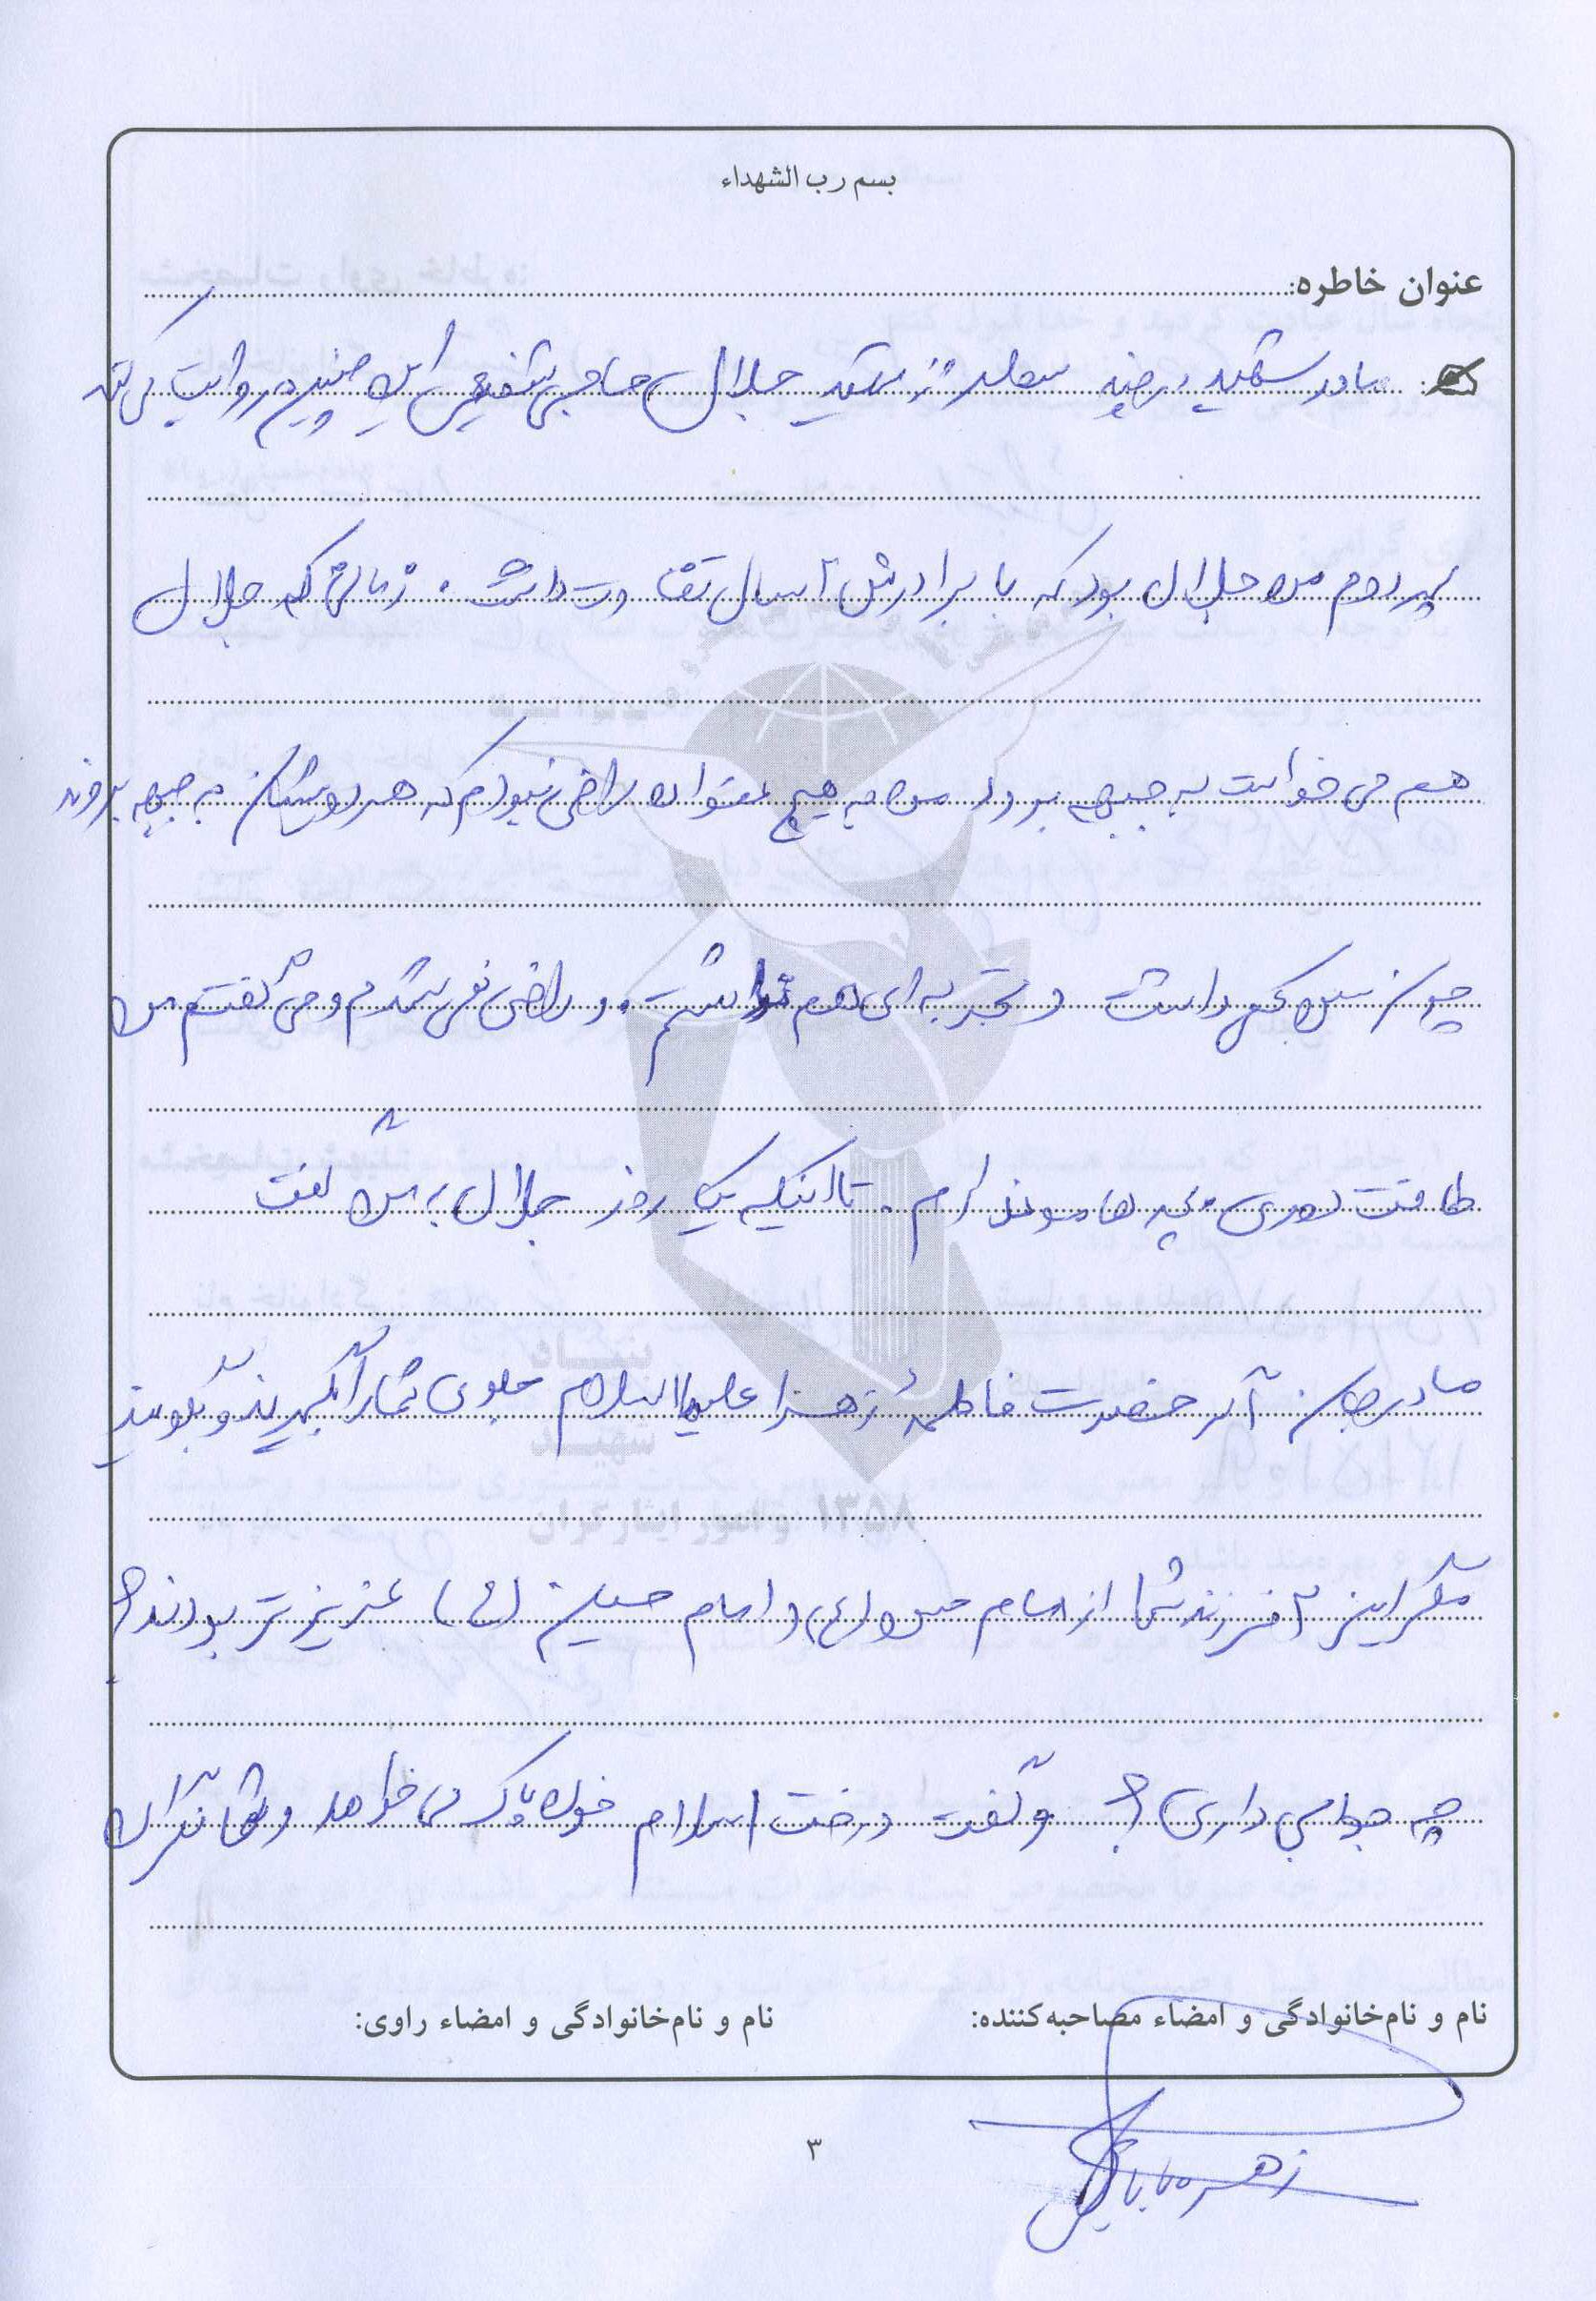 بسم رب الشهداء
عنوان خاطره:
مادر شهید از شهید جلال حاجی شفیعی این چنین روایت می کند
پسر دوم من جلال بود که با برادرش ۲ سال تفاوت داشت. زمانی که جلال
هم می خواست به جبهه برود من به هیچ عنوان راضی نبودم که هر دوشان به جبهه بروند
چون سن کمی داشت و تجربه ای هم نداشتم. و راضی نمی شدم و می گفتم من
طاقت دوری بچه هامو ندارم. تا اینکه یک روز جلال به من گفت
مادر جان اگر حضرت فاطمهٔ زهرا علیها السلام جلوی شما را بگیرند و بگویند
مگر این ۲ فرزند شما از امام حسن (ع) و امام حسین (ع) عزیزتر بودند؟
چه جوابی داری؟ و گفت درخت اسلام خون پاک می خواهد و شما نگران
نام و نام‌خانوادگی و امضاء مصاحبه‌کننده:
نام و نام‌خانوادگی و امضاء راوی:
زهرا
۳